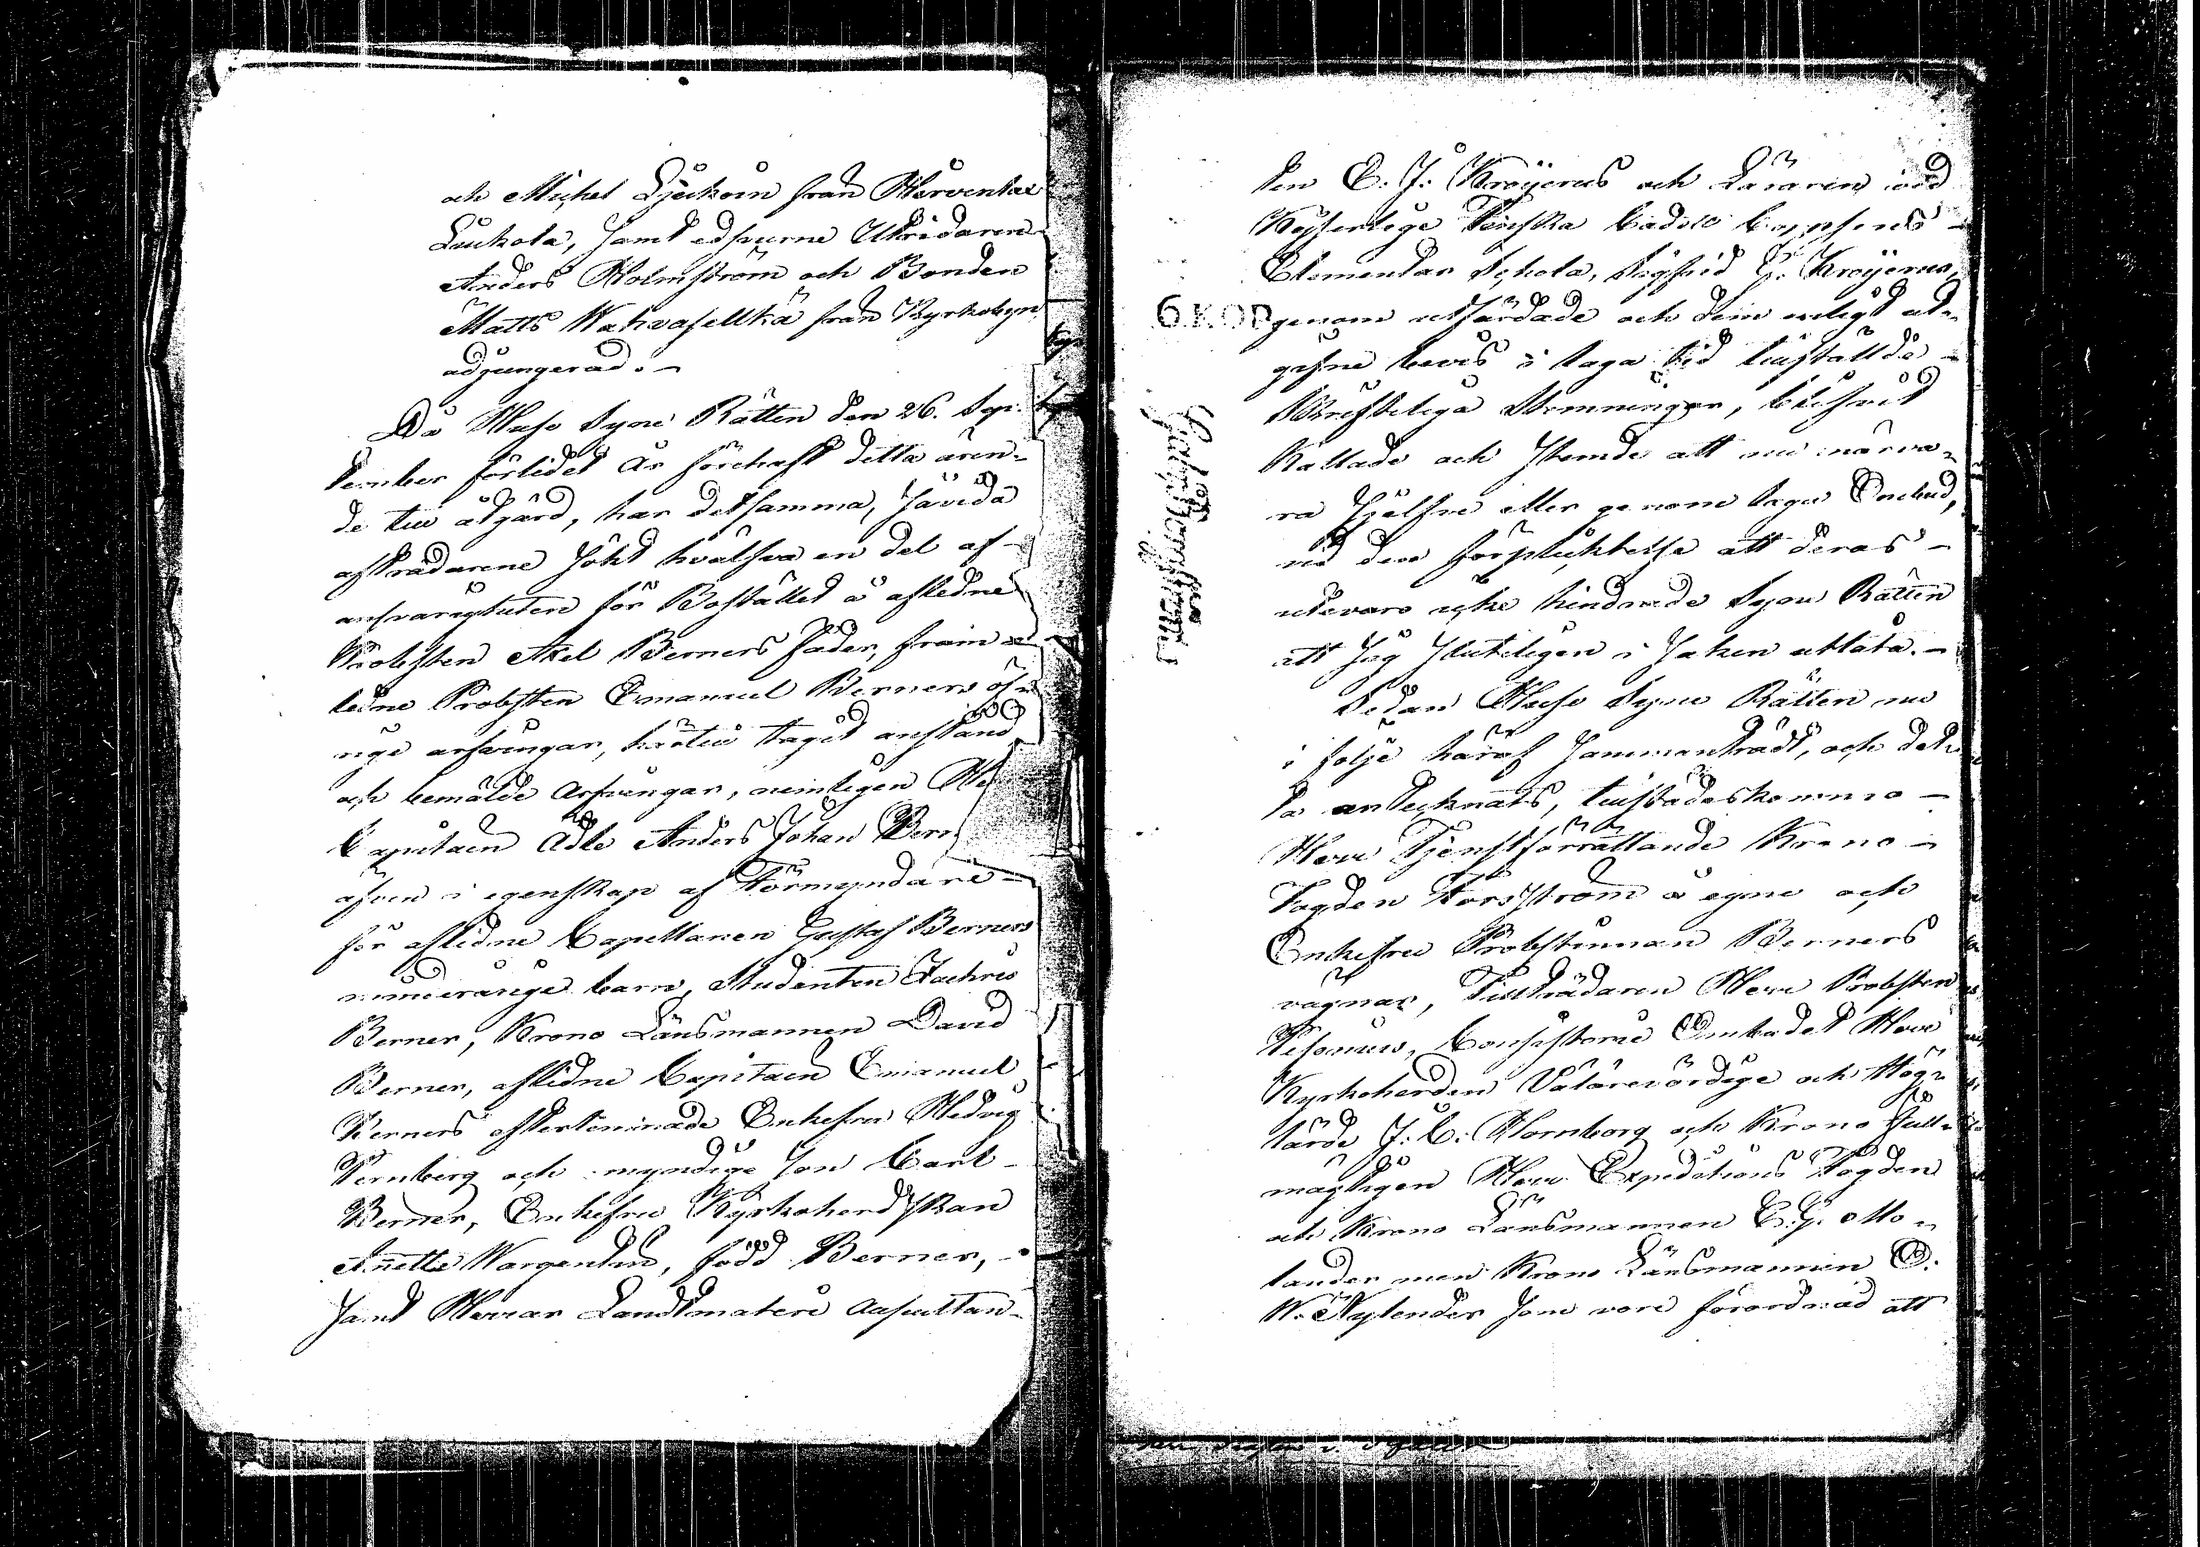 och Michel Ljäckoin från Warventae
Luukola, samt edsvurne Utridaren
Anders Holmström och Bonden
Matts Wahvaselkä från Kyrkobyn
adjungerad. —
Då Huse Syne Rätten den 26. Sep-
tember förlidet År förehaft detta ären-
de till åtgärd, har detsamma, såvida
afträdarene sökt hvälfva en del af
ansvarigheten för Bostället å aflidne
Probsten Axel Berners fader, fram-
ledne Probsten Emanuel Berners öf-
rige arfvingar, härtill tagit anstånd
och bemälde Arfvingar, nemligen He
Capitain Adle Anders Johan Bern
äfven i egenskap af Förmyndare
för aflidne Capellanen Gustaf Berners
minderårige barn, Studenten Zachris
Berner, Krono Länsmannen David
Berner, aflidne Capitain Emanuel
Berners efterlemnade Enkefru Hedvig
Fernberg och myndige son Carl
Berner, Enkefru Kyrkoherdskan
Annette Wargentin, född Berner, —
samt Herrar Landtmäteri Auscultan-
ten E. J. Kröijerus och Läraren vid
Kejserlige Finska Cadett Corpsens
Elementar Schola, Sigfrid G. Kröijerus,
6 KOP
genom utfärdade och dem enligt ut-
gifne bevis i laga tid tillställde
Skriftelige Stemningar, blifvit
Kallade och stemde att nu närva-
ra sjelfve eller genom laga Ombud,
vid den förpliktelse att deras
utevaro icke hindrade Syne Rätten
att sig slutligen i saken utlåta. —
Sedan Huse Syne Rätten nu
i följe häraf sammanträdt, och det-
ta antecknats, tillstädeskommo —
Herr Tjenstförrättande Krono —
Fogden Forsström å egne och
Enkefru Probstinnan Berners
vägnar, Tillträdaren Herr Probsten
Consistorie Ombudet Herr
Kyrkoherden Välärevördige och Hög-
lärde J. C. Hornborg och Krono full-
mägtigen Herr Expeditions Fogden
och Krono Länsmannen C. G. Mo-
lander men Krono Länsmannen O.
W. Nylender som vore förordnad att